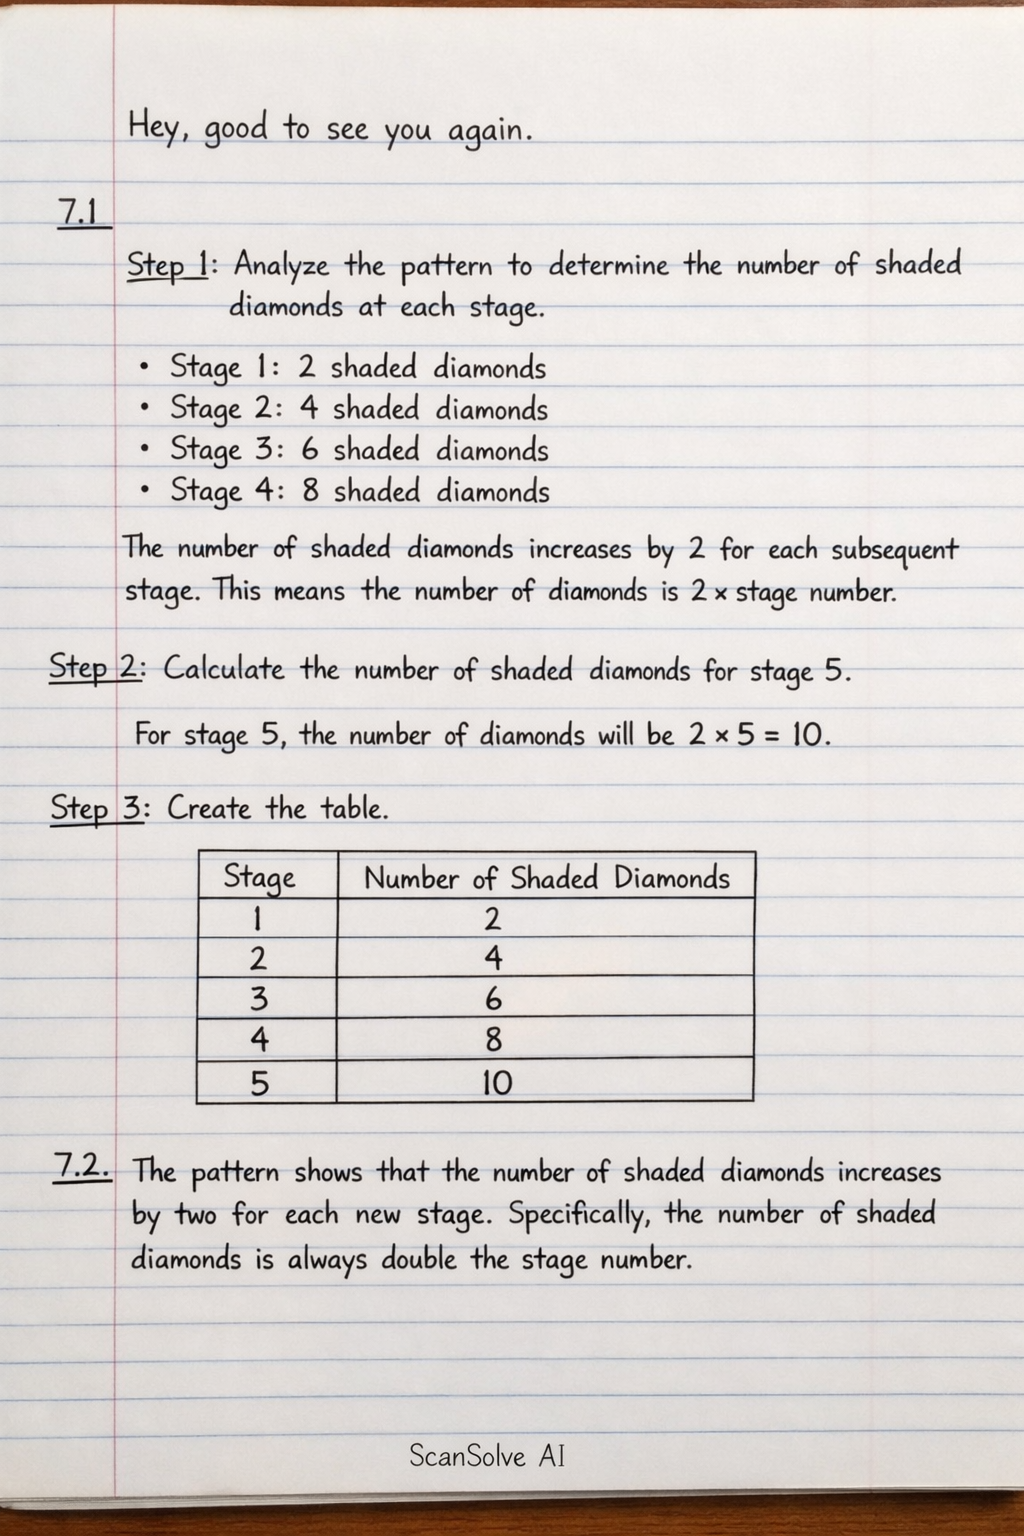 Hey, good to see you again.
7.1
Step 1: Analyze the pattern to determine the number of shaded
diamonds at each stage.
• Stage 1: 2 shaded diamonds
• Stage 2: 4 shaded diamonds
• Stage 3: 6 shaded diamonds
• Stage 4: 8 shaded diamonds
The number of shaded diamonds increases by 2 for each subsequent
stage. This means the number of diamonds is 2 × stage number.
Step 2: Calculate the number of shaded diamonds for stage 5.
For stage 5, the number of diamonds will be 2 × 5 = 10.
Step 3: Create the table.
Stage Number of Shaded Diamonds
1 2
2 4
3 6
4 8
5 10
7.2. The pattern shows that the number of shaded diamonds increases
by two for each new stage. Specifically, the number of shaded
diamonds is always double the stage number.
ScanSolve AI